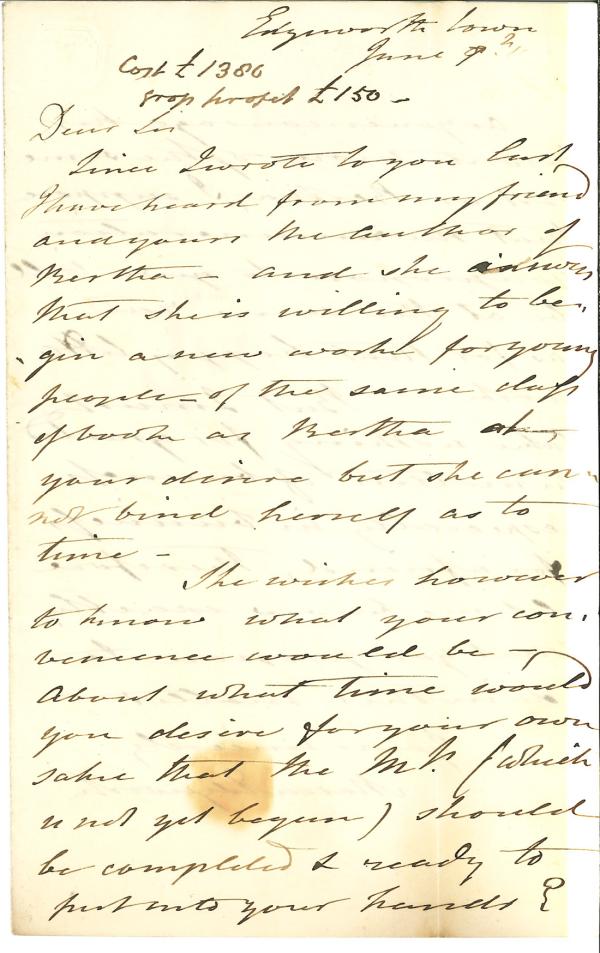 Edgeworth town
June 8th
Cost £1386
grop profit £150 -
Dear Sir
Since I wrote to you last
I have heard from my friend
and yours the author of
Bertha - and she answers
that she is willing to be-
gin a new work for young
people - of the same class
of book as Bertha at
your desire but she can-
not bind herself as to
time -
She wishes however
to know what your con-
venience would be -
About what time would
you desire for your own
sake that the MS. (which
is not yet begun) should
be completed & ready to
put into your hands ?